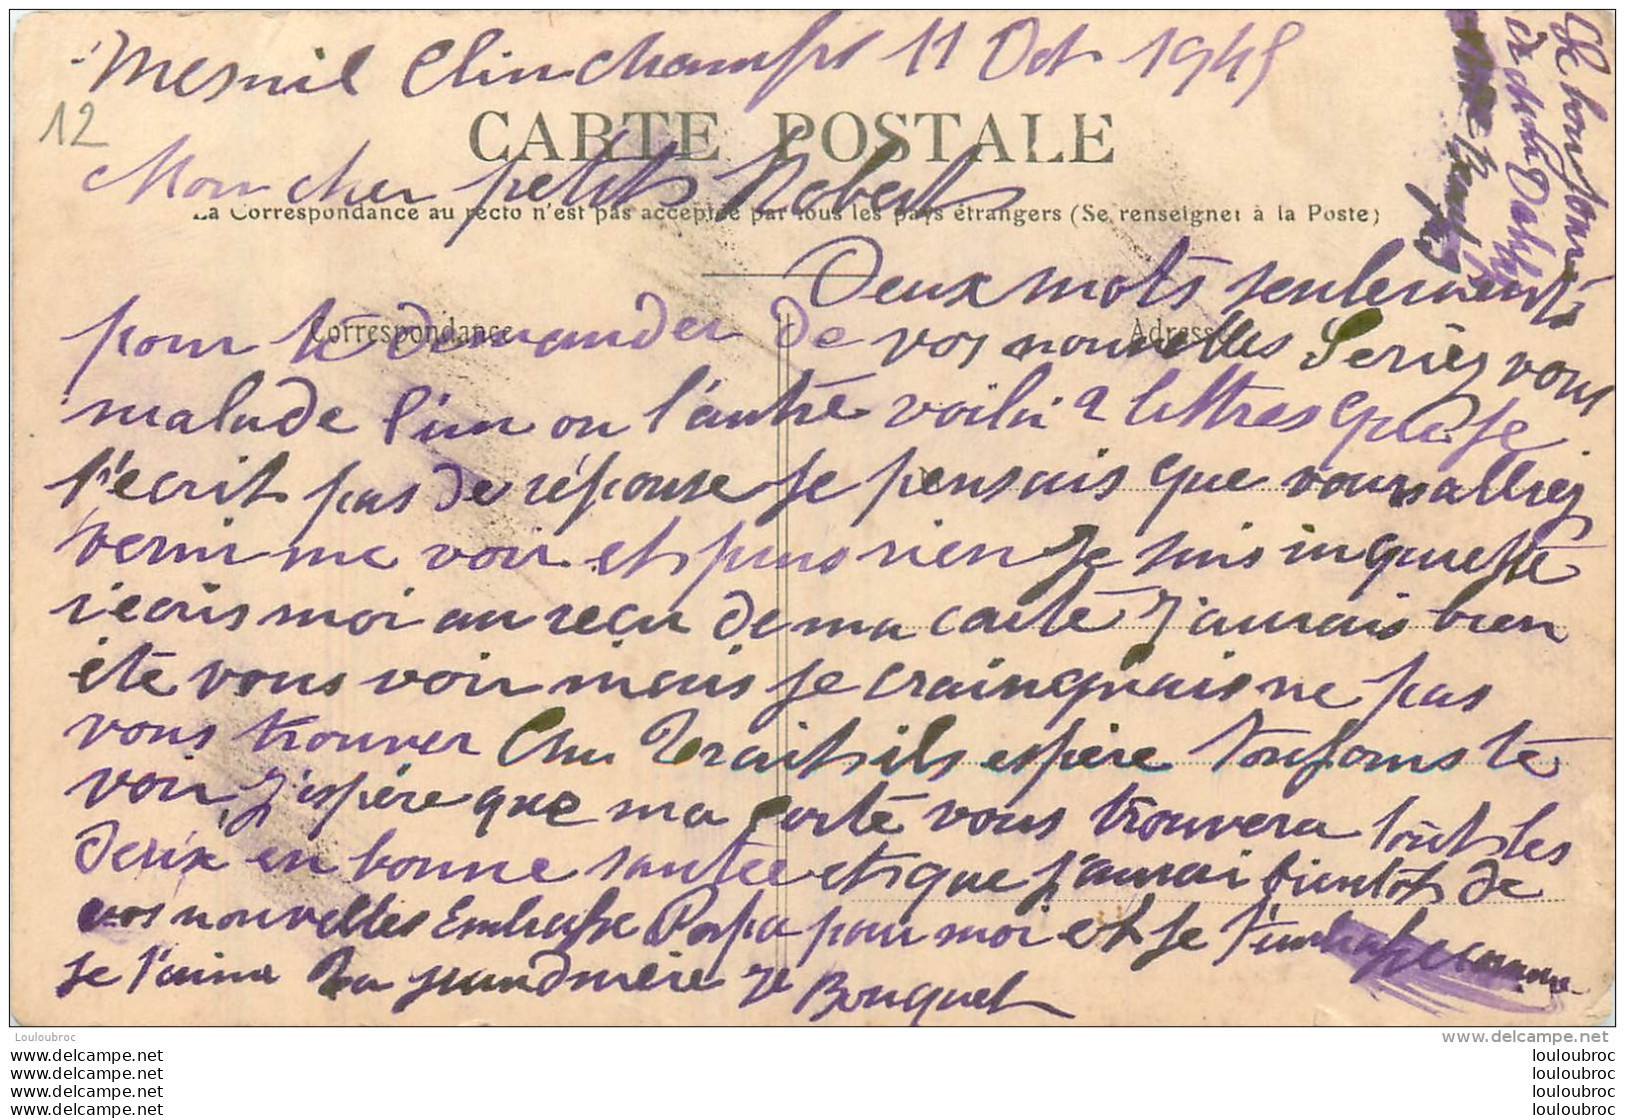 Mesnil Clinchamps 11 Oct 1945
12
CARTE POSTALE
Mon cher petits Robert
La Correspondance au recto n'est pas acceptée par tous les pays étrangers (Se renseigner à la Poste)
Deux mots seulement
Correspondance
Adresse
pour te demander de vos nouvelles Seriez vous
malade l'un ou l'autre voilà 2 lettres que je
t'ecrit pas de réponse je pensais que vous alliez
venir me voir et puis rien Je suis inquiete
ecris moi au reçu de ma carte J'aurais bien
été vous voir mais je craignais ne pas
vous trouver espère toujours te
voir, J'espère que ma carte vous trouvera tout les
deux en bonne santee et que j'aurai bientot de
vos nouvelles Embrasse Papa pour moi et je t'embrasse comme
je t'aime Ta grandmère
Bouquet
Le bonjour
de
Louloubroc
www.delcampe.net
www.delcampe.net
www.delcampe.net
www.delcampe.net
www.delcampe.net
louloubroc
louloubroc
louloubroc
louloubroc